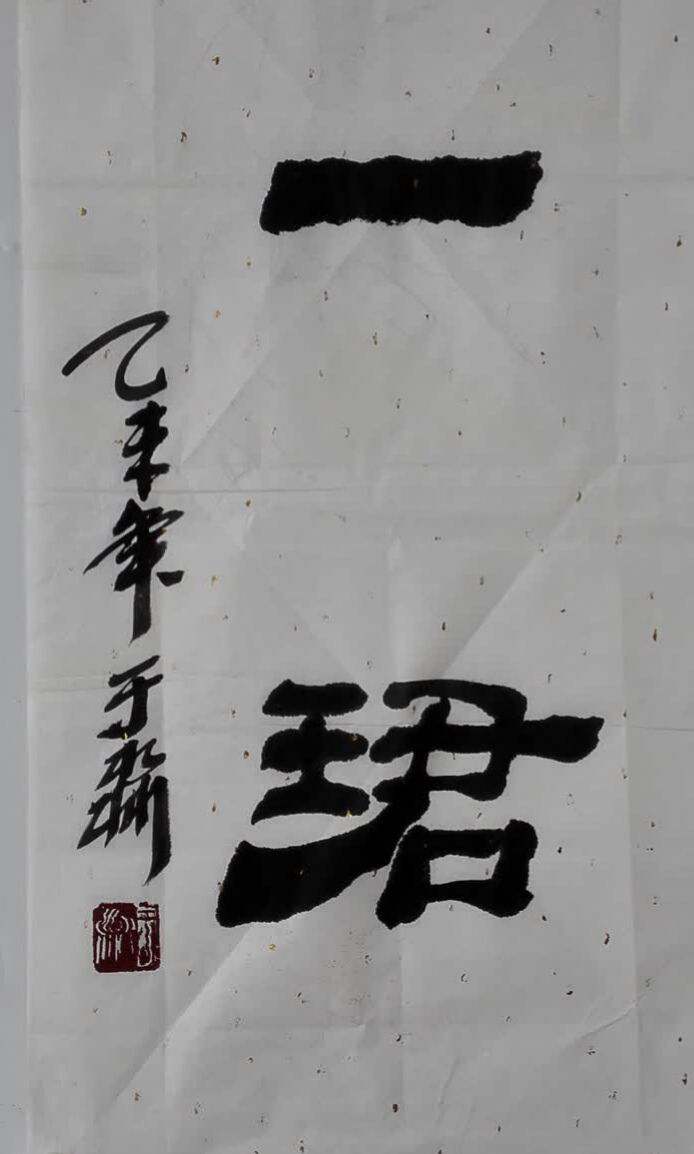 一珺
乙未年 于